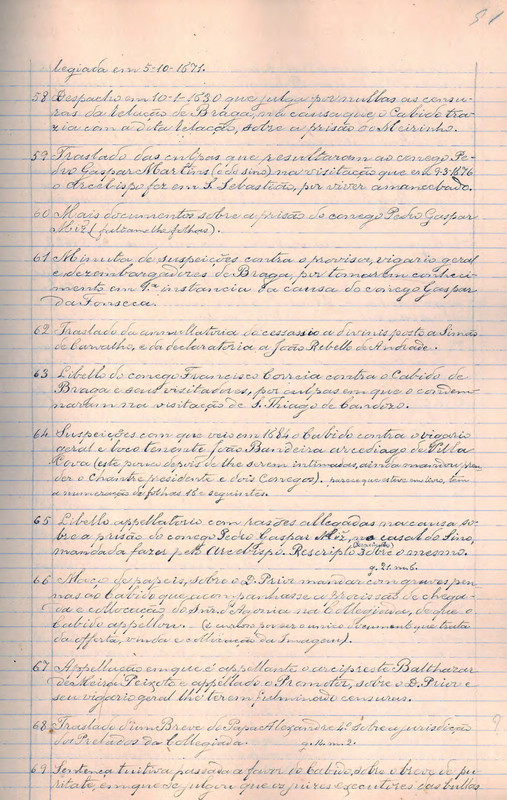 legiada em 5-10-1871.
58 Despacho em 10-1-1630 que julga por nullas as censu-
ras da Relação de Braga, na causa que o Cabido tra-
zia com a dita Relação, sobre a prisão do Meirinho.
59 Traslado das culpas que resultaram ao conego Pe-
dro Gaspar Martins (é do sino) na visitação que em 9-3-1576
o arcebispo fez em S. Sebastião, por viver amancebado.
60 Mais documentos sobre a prisão do conego Pedro Gaspar
folhas).
61 Minuta de suspeições contra o provisor, vigario geral
e desembargadores de Braga, por tomarem conheci-
mento em 1ª instancia da causa do conego Gaspar
da Fonseca.
62 Traslado da annullatoria do cessassio a divinis posto a Simão
de Carvalho, e da declaratoria a João Rebello de Andrade.
63 Libello do conego Francisco Correia contra o Cabido de
Braga e seus visitadores, por culpas em que o condem-
naram na visitação de S. Thiago de Candozo.
64 Suspeições com que veio em 1584 o Cabido contra o vigario
geral e loco tenente João Bandeira arcediago de Villa
Cova (este pouco depois de lhe serem intimadas, ainda mandou pren-
der o Chantre presidente e dois Conegos). parece que esteve em livro, tem
a numeração de folhas 16 e seguintes.
65 Libello appellatorio com rasões allegadas na causa so-
bre a prisão do conego Pedro Gaspar Miz, no casal do Sino,
mandada fazer pelo Arcebispo. Rescripto sobre o mesmo.
g. 21. m. 6.
66 Maço de papeis, sobre o D. Prior mandar com graves pe-
nas ao Cabido que acompanhasse a procissão de chega-
da e collocação do Snr. d'Agonia na Collegiada, de que o
Cabido appellou. (é curioso por ser o unico documento que trata
da offerta, vinda e collocação da Imagem).
67 Appellação em que é appellante o arcipreste Balthazar
de Meira Peixoto e appellado o Promotor, sobre o D. Prior e
seu vigario geral lhe terem fulminado censuras.
68 Traslado d'um Breve do Papa Alexandre 4º sobre a jurisdicção
dos Prelados da Collegiada. g. 14. m. 2.
69 Sentença tuitiva passada a favor do Cabido, sobre o breve de pu-
ritate, em que se julgou que os juizes executores das bullas